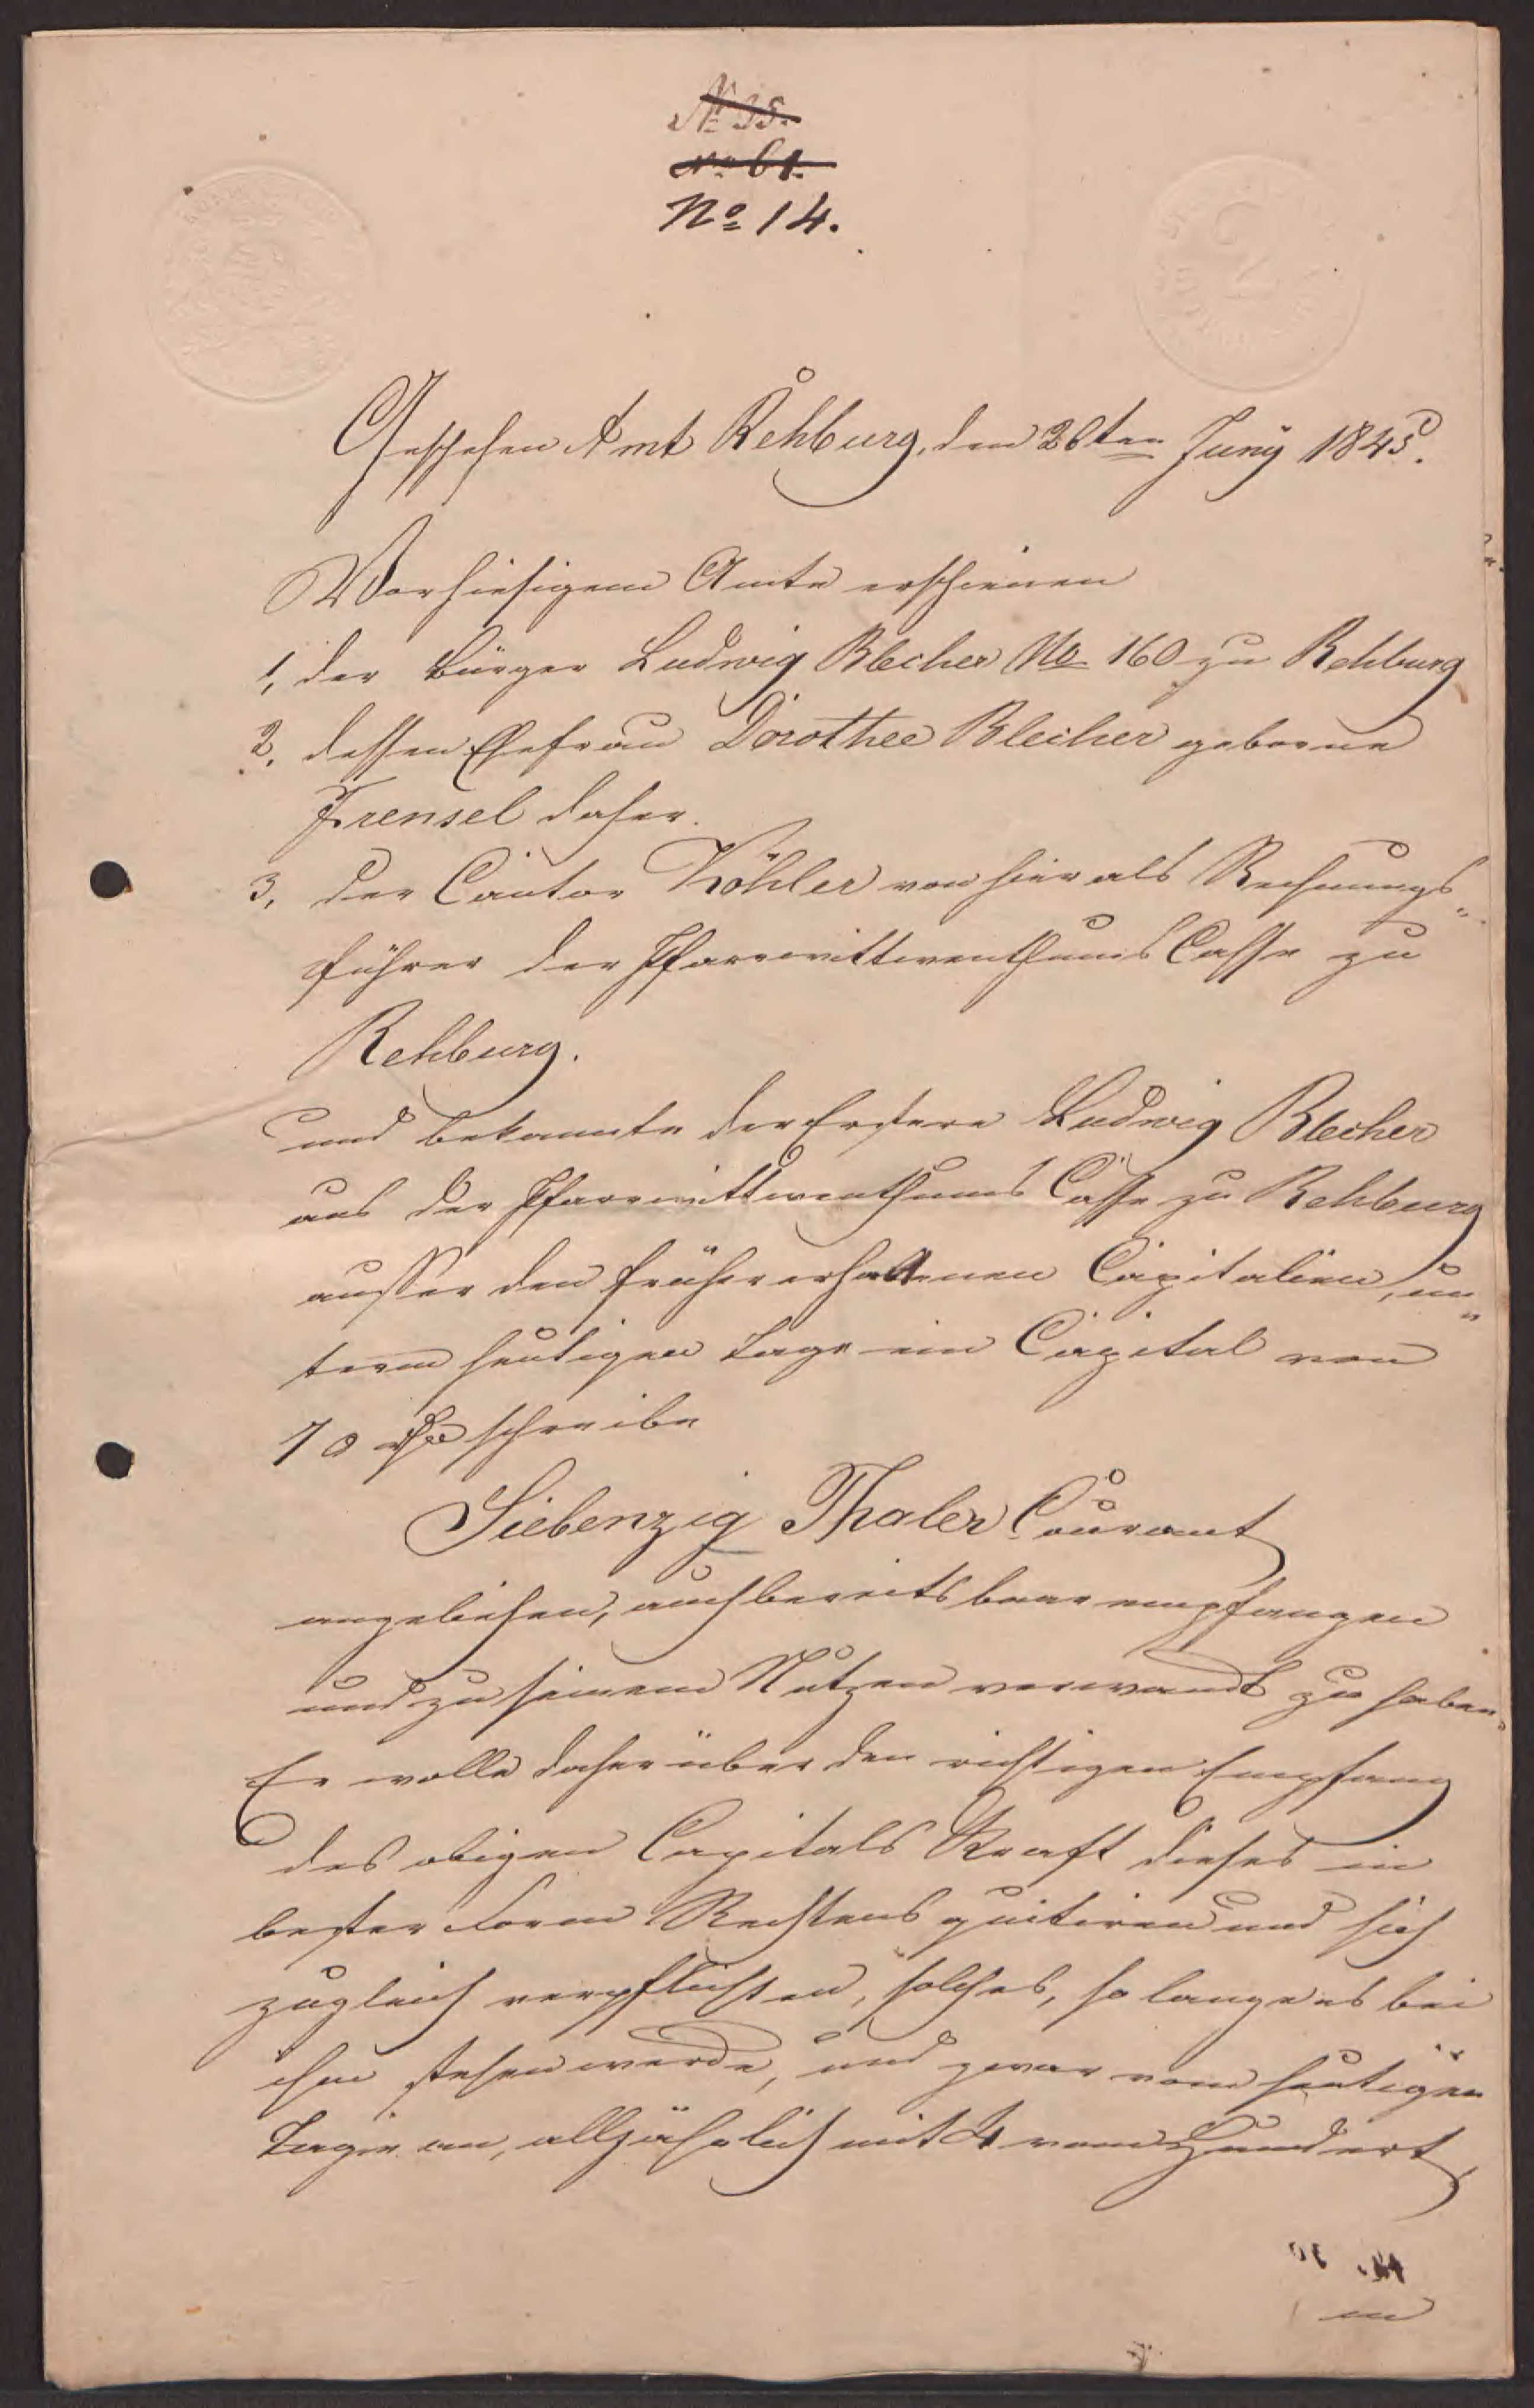 № 35.
No 61.
No 14.
Geschehen Amt Rehburg, den 28ten Juny 1845.
Vor hiesigem Amte erschienen
1, der Bürger Ludwig Blecher No 160 zu Rehburg
2, dessen Ehefrau Dorothee Blecher geborne
Frensel daher.
3, der Cantor Köhler von hier als Rechnungs-
führer der Pfarrwittwenthums Casse zu
Rehburg.
und bekannte der Erstere Ludwig Blecher
aus der Pfarrwittwenthums Casse zu Rehburg
ausser den früher erhaltenen Capitalien, un-
term heutigen Tage ein Capital von
70 rthlr schreibe
Siebenzig Thaler Courant
angeliehen, auch bereits baar empfangen
und zu seinem Nutzen verwandt zu haben.
Er wolle daher über den richtigen Empfang
des obigen Capitals Kraft dieses in
bester Form Rechtens quitiren und sich
zugleich verpflichten, solches, so lange es bei
ihm stehen werde, und zwar vom heutigen
Tage an, alljährlich mit 4 vom Hundert,